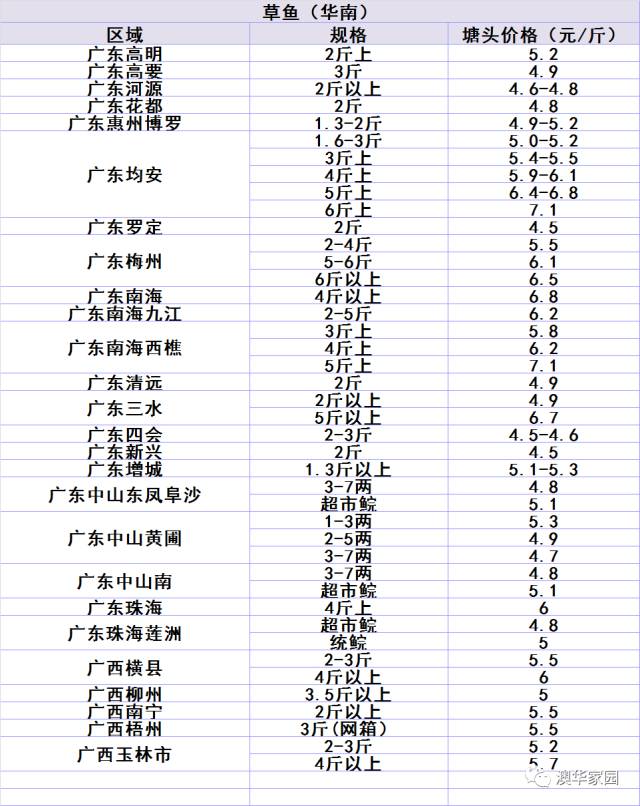 草鱼（华南）
区域 规格 塘头价格（元/斤）
广东高明 2斤上 5.2
广东高要 3斤 4.9
广东河源 2斤以上 4.6-4.8
广东花都 2斤 4.8
广东惠州博罗 1.3-2斤 4.9-5.2
广东均安 1.6-3斤 5.0-5.2
3斤上 5.4-5.5
4斤上 5.9-6.1
5斤上 6.4-6.8
6斤上 7.1
广东罗定 2斤 4.5
广东梅州 2-4斤 5.5
5-6斤 6.1
6斤以上 6.5
广东南海 4斤以上 6.8
广东南海九江 2-5斤 6.2
广东南海西樵 3斤上 5.8
4斤上 6.2
5斤上 7.1
广东清远 2斤 4.9
广东三水 2斤以上 4.9
5斤以上 6.7
广东四会 2-3斤 4.5-4.6
广东新兴 2斤 4.5
广东增城 1.3斤以上 5.1-5.3
广东中山东凤阜沙 3-7两 4.8
超市鲩 5.1
广东中山黄圃 1-3两 5.3
2-5两 4.9
3-7两 4.7
广东中山南 3-7两 4.8
超市鲩 5.1
广东珠海 4斤上 6
广东珠海莲洲 超市鲩 4.8
统鲩 5
广西横县 2-3斤 5.5
4斤以上 6
广西柳州 3.5斤以上 5
广西南宁 2斤以上 5.5
广西梧州 3斤(网箱） 5.5
广西玉林市 2-3斤 5.2
4斤以上 5.7
澳华家园